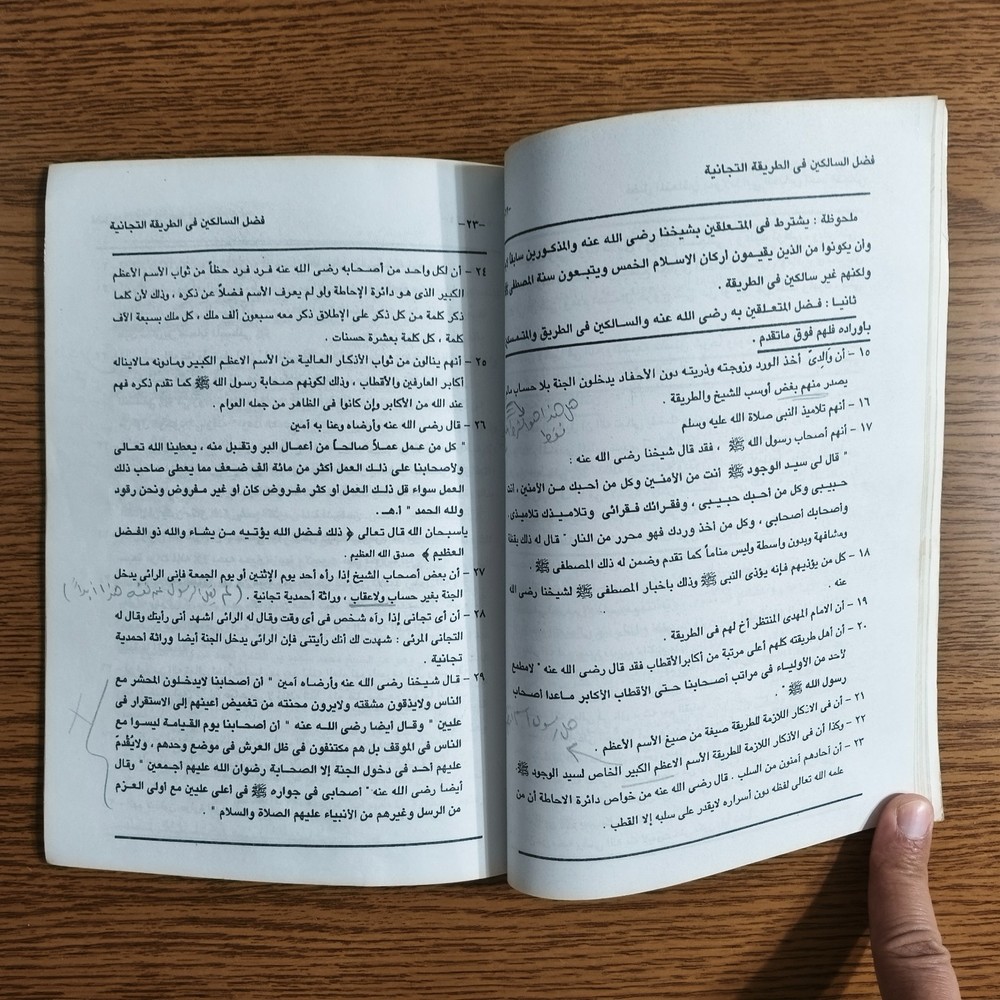 فضل السالكين فى الطريقة التجانية
ملحوظة : يشترط فى المتعلقين بشيخنا رضى الله عنه والمذكورين سابقا
وأن يكونوا من الذين يقيمون أركان الاسلام الخمس ويتبعون سنة المصطفى
ولكنهم غير سالكين فى الطريقة .
ثانيا : فضل المتعلقين به رضى الله عنه والسالكين فى الطريق والمتمسـ
باوراده فلهم فوق ماتقدم .
١٥ – أن والدىّ أخذ الورد وزوجته وذريته دون الأحفاد يدخلون الجنة بلا حساب
يصدر منهم بغض أوسب للشيخ والطريقة .
١٦ – أنهم تلاميذ النبى صلاة الله عليه وسلم
١٧ – أنهم أصحاب رسول الله ﷺ ، فقد قال شيخنا رضى الله عنه :
" قال لى سيد الوجود ﷺ أنت من الآمنين وكل من أحبك من الآمنين ، أنت
حبيبى وكل من أحبك حبيبى ، وفقرائك فقرائى وتلاميذك تلاميذى ،
وأصحابك أصحابى ، وكل من أخذ وردك فهو محرر من النار " قال له ذلك يقظة
ومشافهة وبدون واسطة وليس مناماً كما تقدم وضمن له ذلك المصطفى ﷺ .
١٨ – كل من يؤذيهم فإنه يؤذى النبى ﷺ وذلك باخبار المصطفى ﷺ لشيخنا رضى الله
عنه .
١٩ – أن الامام المهدى المنتظر أخ لهم فى الطريقة .
٢٠ – أن أهل طريقته كلهم أعلى مرتبة من أكابر الأقطاب فقد قال رضى الله عنه " لامطمع
لأحد من الأولياء فى مراتب أصحابنا حتى الأقطاب الأكابر ماعدا أصحاب
رسول الله ﷺ " .
٢١ – أن فى الاذكار اللازمة للطريقة صيغة من صيغ الأسم الأعظم .
٢٢ – وكذا أن فى الأذكار اللازمة للطريقة الأسم الاعظم الكبير الخاص لسيد الوجود ﷺ .
٢٣ – أن أحادهم أمنون من السلب . قال رضى الله عنه من خواص دائرة الاحاطة أن من
علمه الله تعالى لفظه دون أسراره لايقدر على سلبه إلا القطب .
فضل السالكين فى الطريقة التجانية
–٢٣–
٢٤ – أن لكل واحد من أصحابه رضى الله عنه فرد فرد حظاً من ثواب الأسم الأعظم
الكبير الذى هو دائرة الإحاطة ولو لم يعرف الأسم فضلاً عن ذكره ، وذلك لأن كلما
ذكر كلمة من كل ذكر على الإطلاق ذكر معه سبعون ألف ملك ، كل ملك بسبعة ألاف
كلمة ، كل كلمة بعشرة حسنات .
٢٥ – أنهم ينالون من ثواب الأذكار العالية من الأسم الاعظم الكبير ومادونه مالايناله
أكابر العارفين والأقطاب ، وذلك لكونهم صحابة رسول الله ﷺ كما تقدم ذكره فهم
عند الله من الأكابر وإن كانوا فى الظاهر من جمله العوام .
٢٦ – قال رضى الله عنه وأرضاه وعنا به أمين
" كل من عمل عملاً صالحاً من أعمال البر وتقبل منه ، يعطينا الله تعالى
ولأصحابنا على ذلك العمل أكثر من مائة ألف ضعف مما يعطى صاحب ذلك
العمل سواء قل ذلك العمل أو كثر مفروض كان أو غير مفروض ونحن رقود
ولله الحمد " أ.هـ .
ياسبحان الله قال تعالى ﴿ ذلك فضل الله يؤتيه من يشاء والله ذو الفضل
العظيم ﴾ صدق الله العظيم .
٢٧ – أن بعض أصحاب الشيخ إذا رأه أحد يوم الإثنين أو يوم الجمعة فإنى الرائى يدخل
الجنة بغير حساب ولاعقاب ، وراثة أحمدية تجانية .
٢٨ – أن أى تجانى إذا رأه شخص فى أى وقت وقال له الرائى اشهد أنى رأيتك وقال له
التجانى المرئى : شهدت لك أنك رأيتنى فإن الرائى يدخل الجنة أيضا وراثة احمدية
تجانية .
٢٩ – قال شيخنا رضى الله عنه وأرضاه أمين " أن أصحابنا لايدخلون المحشر مع
الناس ولايذوقون مشقته ولايرون محنته من تغميض أعينهم إلى الاستقرار فى
عليين " وقال أيضا رضى الله عنه " أن أصحابنا يوم القيامة ليسوا مع
الناس فى الموقف بل هم مكتنفون فى ظل العرش فى موضع وحدهم ، ولايُقْدمّ
عليهم أحد فى دخول الجنة إلا الصحابة رضوان الله عليهم أجمعين " وقال
أيضا رضى الله عنه " أصحابى فى جواره ﷺ فى أعلى عليين مع أولى العزم
من الرسل وغيرهم من الأنبياء عليهم الصلاة والسلام " .